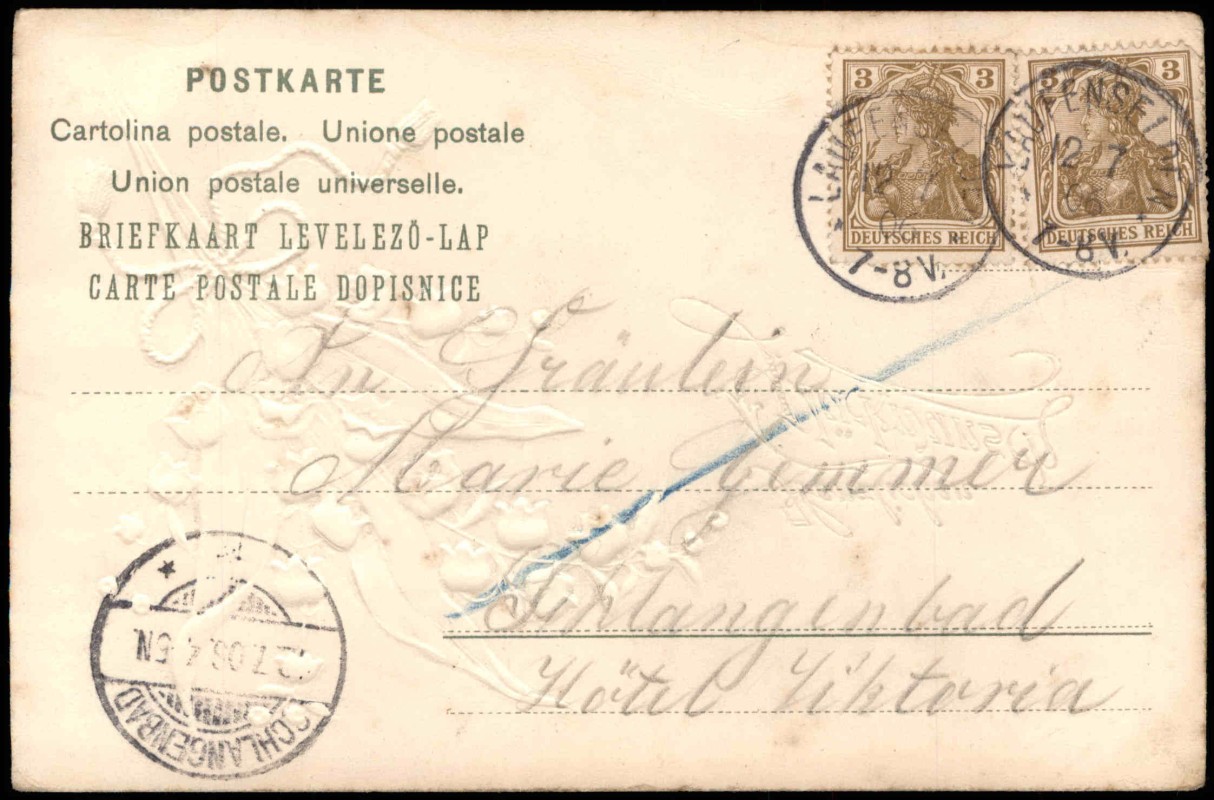 POSTKARTE
Cartolina postale. Unione postale
Union postale universelle.
BRIEFKAART LEVELEZÖ-LAP
CARTE POSTALE DOPISNICE
3 3
DEUTSCHES REICH
3 3
DEUTSCHES REICH
LAUFENSELDEN
12 7
06
7-8V.
LAUFENSELDEN
12 7
06
7-8V.
An Fräulein
Marie Zimmer
Schlangenbad
Hôtel Viktoria
SCHLANGENBAD
12.7.06.4-5N